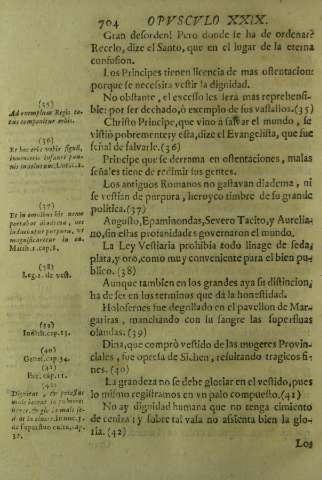 704 OPVSCVLO XXIX.
Gran desorden! Pero donde se ha de ordenar?
Recelo, dize el Santo, que en el lugar de la eterna
confusion.
Los Principes tienen licencia de mas ostentacion:
porque se necesita vestir la dignidad.
No obstante, el excesso les serà mas reprehensi-
ble: por ser dechado, ò exemplo de sus vassallos.(35)
Christo Principe, que vino à salvar el mundo, se
vistiò pobremente; y esta, dize el Evangelista, que fue
señal de salvarle.(36)
Principe que se derrama en ostentaciones, malas
señales tiene de redimir sus gentes.
Los antiguos Romanos no gastavan diadema, ni
se vestian de purpura, heroyco timbre de su grande
politica.(37)
Augusto, Epaminondas, Severo Tacito, y Aurelia-
no, sin estas profanidades governaron el mundo.
La Ley Vestiaria prohibia todo linage de seda,
plata, y oro, como muy conveniente para el bien pu-
blico. (38)
Aunque tambien en los grandes aya su distincion,
ha de ser en los terminos que dà la honestidad.
Holofernes fue degollado en el pavellon de Mar-
garitas, manchando con su sangre las superfluas
olandas. (39)
Dina, que comprò vestido de las mugeres Provin-
ciales, fue opresa de Sichen, resultando tragicos fi-
nes. (40)
La grandeza no se debe gloriar en el vestido, pues
lo mismo registramos en vn palo compuesto.(41)
No ay dignidad humana que no tenga cimiento
de ceniza; y sobre tal vasa no assienta bien la glo-
ria. (42)
Los
(35)
Ad exemplum Regis to-
tus componitur orbis.
(36)
Et hoc erit vobis signũ,
invenietis infantē pan-
nis involutum.
(37)
Et in omnibus his nemo
portabat diadema, nec
induebatur purpura, vt
magnificaretur in ea.
Mach.1.cap.8.
(38)
Leg.1. de vest.
(39)
Iudith.cap.13.
(40)
Genes.cap.34.
(41)
(42)